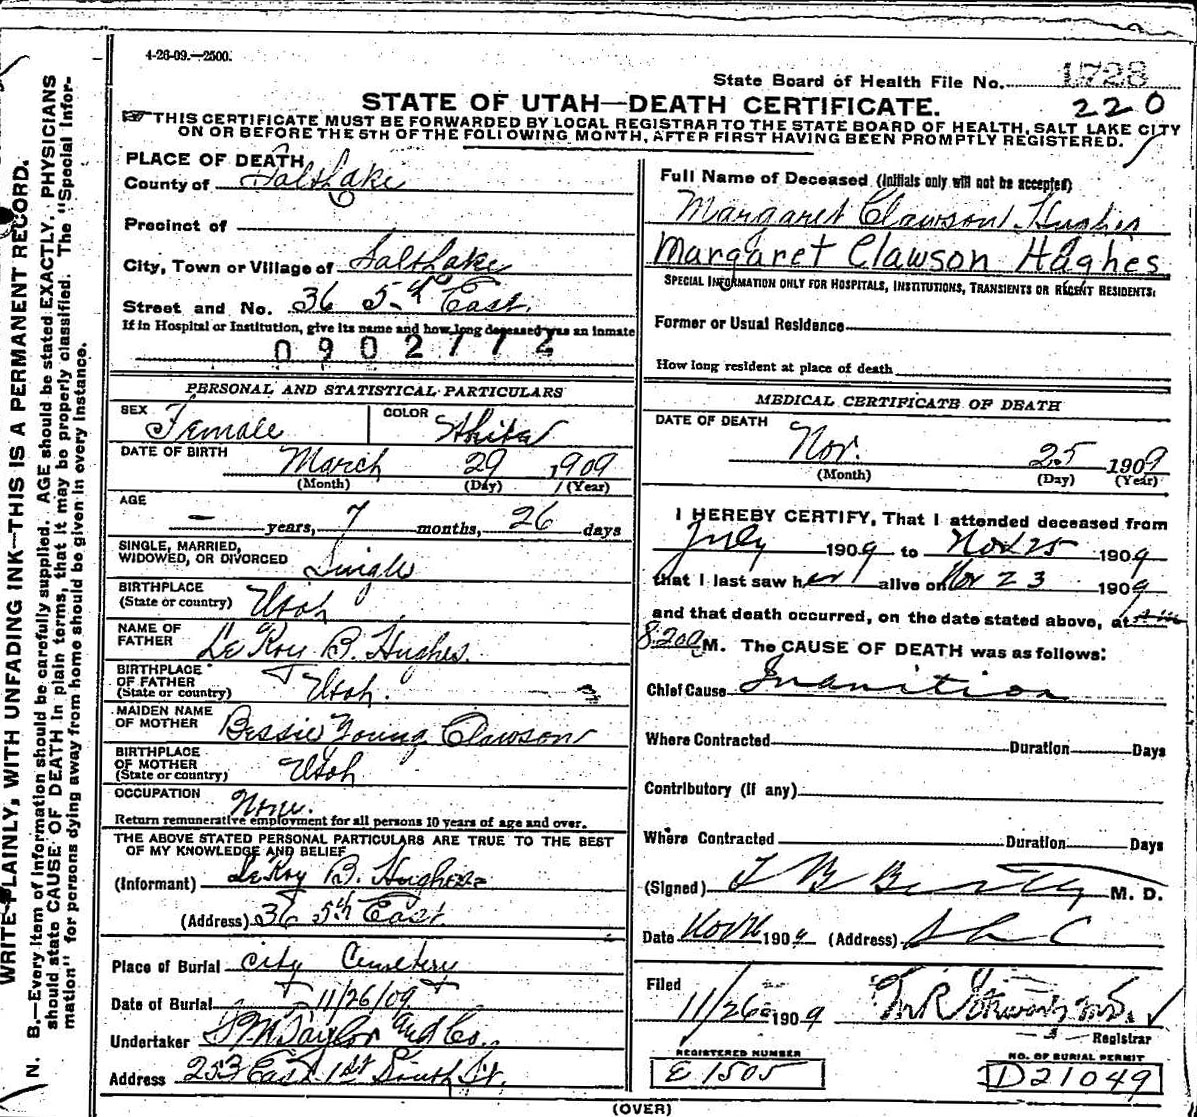 4-26-09.—2500.
State Board of Health File No. 1728
STATE OF UTAH—DEATH CERTIFICATE.
220
THIS CERTIFICATE MUST BE FORWARDED BY LOCAL REGISTRAR TO THE STATE BOARD OF HEALTH, SALT LAKE CITY
ON OR BEFORE THE 5TH OF THE FOLLOWING MONTH, AFTER FIRST HAVING BEEN PROMPTLY REGISTERED.
WRITE PLAINLY, WITH UNFADING INK—THIS IS A PERMANENT RECORD.
N. B.—Every item of information should be carefully supplied. AGE should be stated EXACTLY. PHYSICIANS
should state CAUSE OF DEATH in plain terms, that it may be properly classified. The "Special Infor-
mation" for persons dying away from home should be given in every instance.
PLACE OF DEATH
County of Salt Lake
Precinct of
City, Town or Village of Salt Lake
Street and No. 36 5th East.
If in Hospital or Institution, give its name and how long deceased was an inmate
0902772
PERSONAL AND STATISTICAL PARTICULARS
SEX Female COLOR White
DATE OF BIRTH March 29 1909
(Month) (Day) (Year)
AGE
— years, 7 months, 26 days
SINGLE, MARRIED,
WIDOWED, OR DIVORCED Single
BIRTHPLACE
(State or country) Utah
NAME OF
FATHER Le Roy B. Hughes.
BIRTHPLACE
OF FATHER
(State or country) Utah.
MAIDEN NAME
OF MOTHER Bessie Young Clawson
BIRTHPLACE
OF MOTHER
(State or country) Utah
OCCUPATION None.
Return remunerative employment for all persons 10 years of age and over.
THE ABOVE STATED PERSONAL PARTICULARS ARE TRUE TO THE BEST
OF MY KNOWLEDGE AND BELIEF
(Informant) LeRoy B. Hughes
(Address) 36 5th East.
Place of Burial City Cemetery
Date of Burial 11/26/09
Undertaker Taylor and Co.
Address 253 East 1st South St.
Full Name of Deceased (Initials only will not be accepted)
Margaret Clawson Hughes
Margaret Clawson Hughes
SPECIAL INFORMATION ONLY FOR HOSPITALS, INSTITUTIONS, TRANSIENTS OR RECENT RESIDENTS:
Former or Usual Residence
How long resident at place of death
MEDICAL CERTIFICATE OF DEATH
DATE OF DEATH
Nov. 25 1909
(Month) (Day) (Year)
I HEREBY CERTIFY, That I attended deceased from
July 1909 to Nov 25 1909
that I last saw her alive on Nov 23 1909
and that death occurred, on the date stated above, at
8.20a M. The CAUSE OF DEATH was as follows:
Chief Cause Inanition
Where Contracted Duration Days
Contributory (if any)
Where Contracted Duration Days
(Signed) T B Beatty M. D.
Date Nov 26 1909 (Address) S L C
Filed
11/26 1909
Registrar
REGISTERED NUMBER
E 1505
NO. OF BURIAL PERMIT
D21049
(OVER)